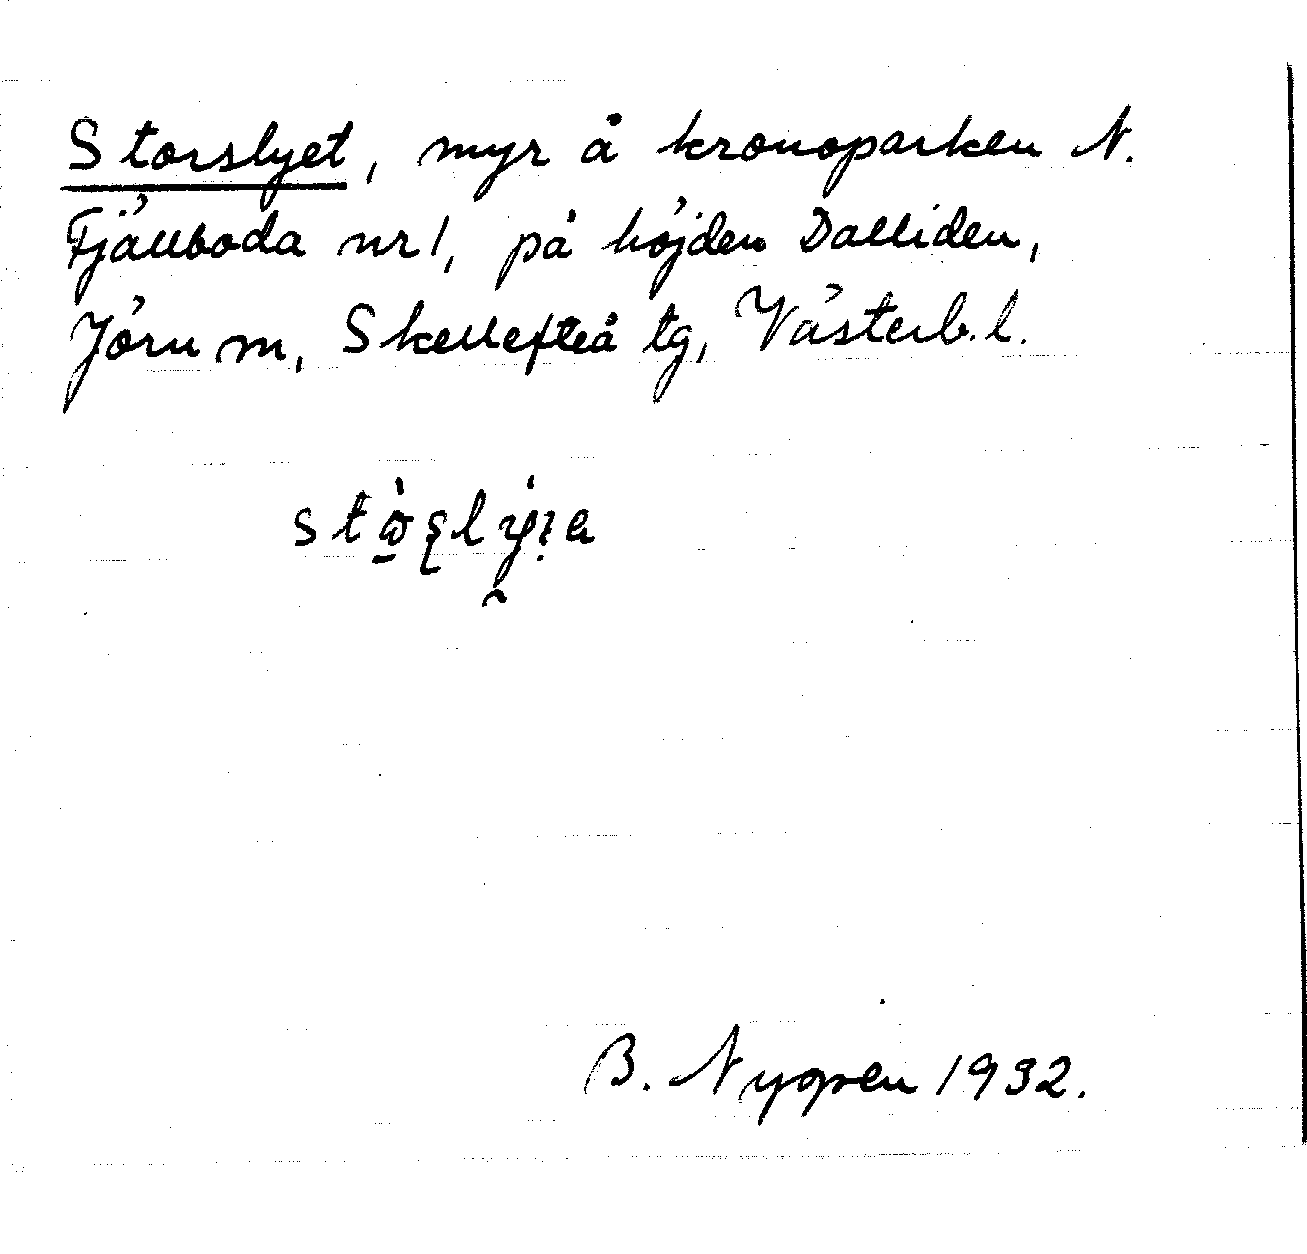 Storslyet, myr å kronoparken N.
Fjällboda nr 1, på höjden Dalliden,
Jörn m, Skellefteå tg, Västerb. l.
B. Nygren 1932.